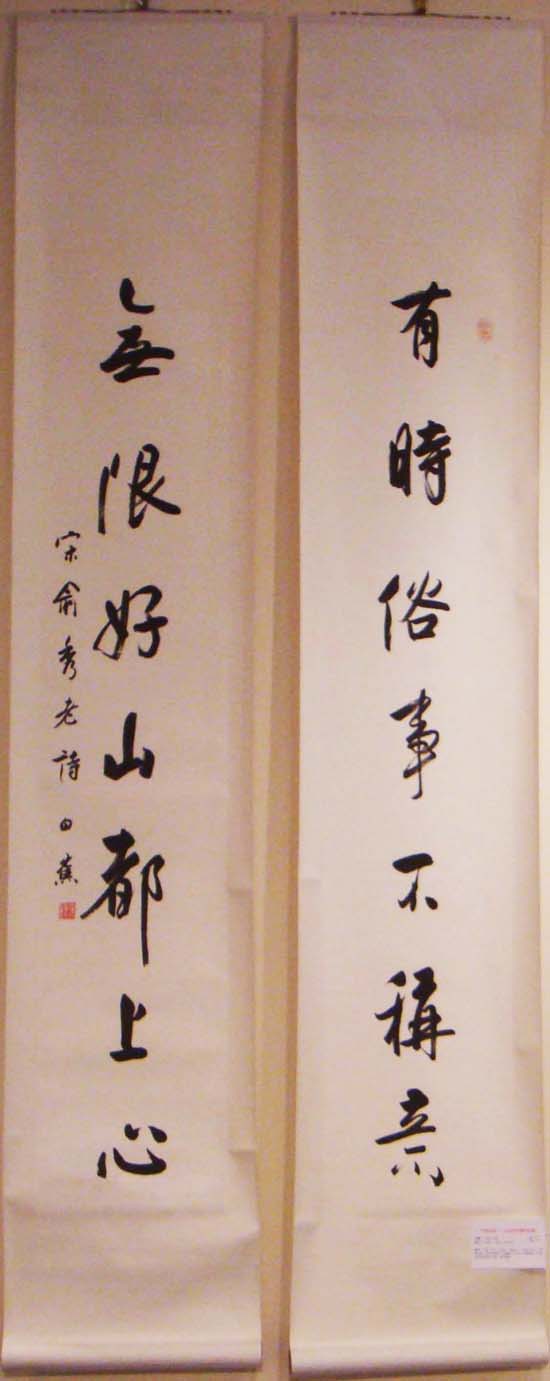 有時俗事不稱意
無限好山都上心
宋俞秀老詩 白蕉